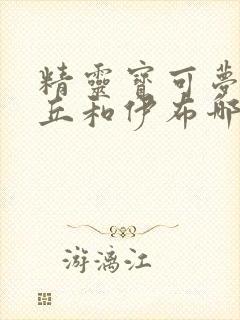 精靈寶可夢
丘和伊布那
游漓江